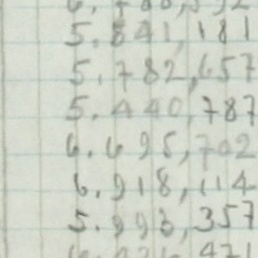 5.841,181
5.782,657
5.440,787
6.695,702
6.918,114
5.993,357